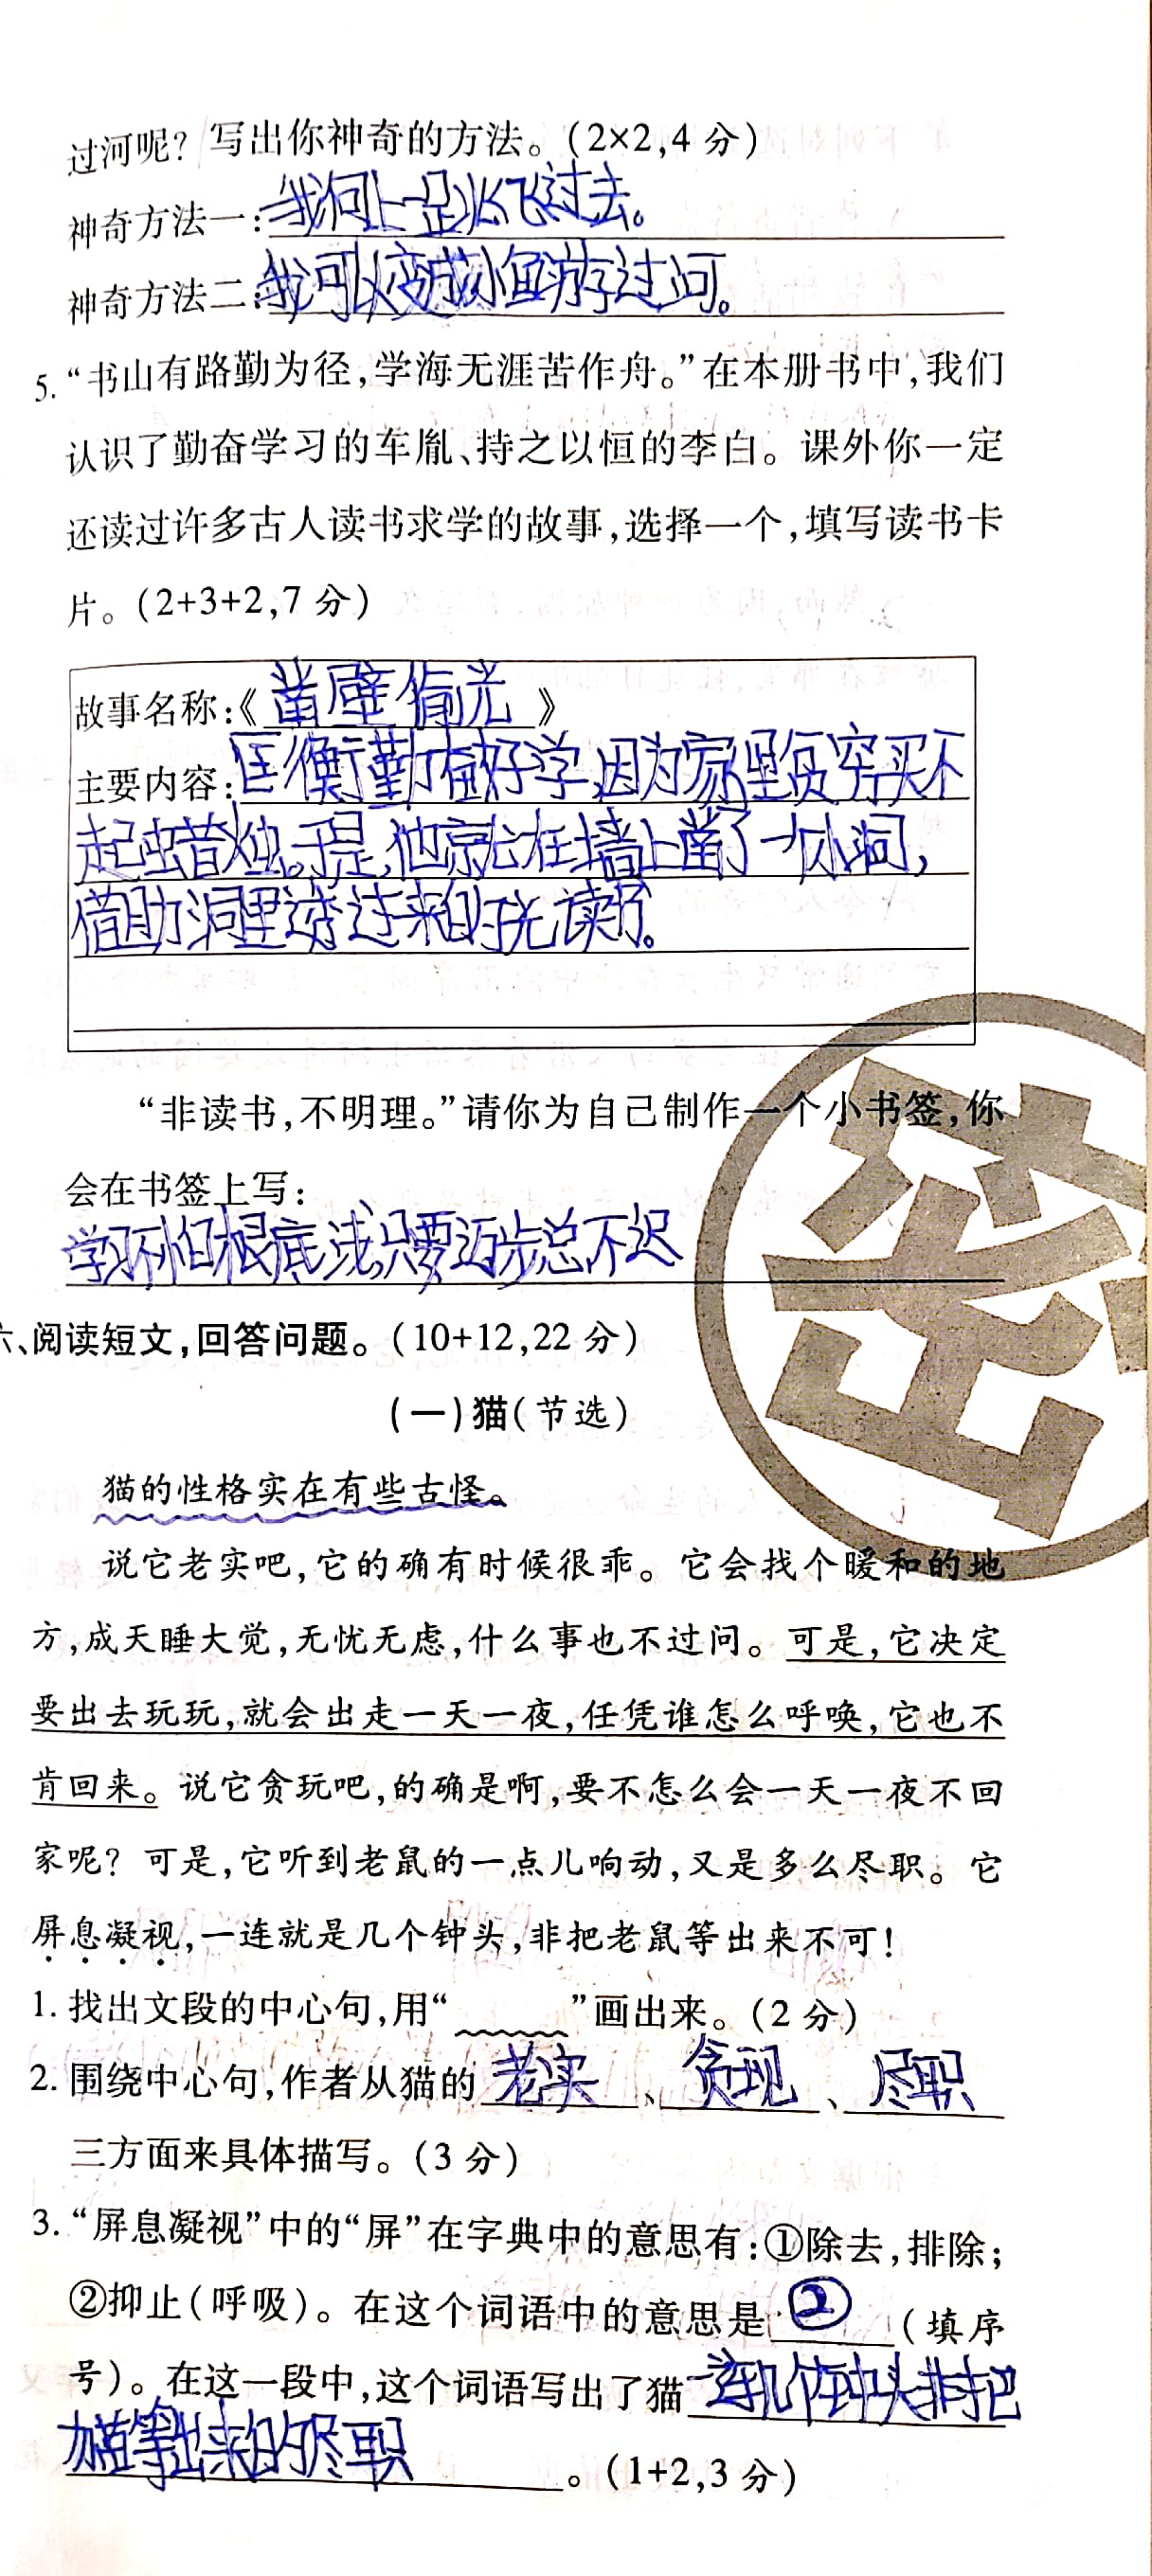 过河呢？写出你神奇的方法。（2×2,4 分）
神奇方法一：我
飞过去。
神奇方法二：我可以变成小鱼游过河。
5. “书山有路勤为径，学海无涯苦作舟。”在本册书中，我们
认识了勤奋学习的车胤、持之以恒的李白。课外你一定
还读过许多古人读书求学的故事，选择一个，填写读书卡
片。（2+3+2,7 分）
故事名称：《凿壁偷光》
主要内容：匡衡勤奋好学，因为家里贫穷买不
起蜡烛。于是，他就在墙上凿了一个小洞，
借助洞里透过来的光读书。
“非读书，不明理。”请你为自己制作一个小书签，你
会在书签上写：
学习不怕根底浅，只要迈步总不迟
六、阅读短文，回答问题。（10+12,22 分）
（一）猫（节选）
猫的性格实在有些古怪。
说它老实吧，它的确有时候很乖。它会找个暖和的地
方，成天睡大觉，无忧无虑，什么事也不过问。可是，它决定
要出去玩玩，就会出走一天一夜，任凭谁怎么呼唤，它也不
肯回来。说它贪玩吧，的确是啊，要不怎么会一天一夜不回
家呢？可是，它听到老鼠的一点儿响动，又是多么尽职。它
屏息凝视，一连就是几个钟头，非把老鼠等出来不可！
1. 找出文段的中心句，用“ ”画出来。（2 分）
2. 围绕中心句，作者从猫的 老实 、 贪现 、 尽职
三方面来具体描写。（3 分）
3. “屏息凝视”中的“屏”在字典中的意思有：①除去，排除；
②抑止（呼吸）。在这个词语中的意思是 ② （填序
号）。在这一段中，这个词语写出了猫一连几个钟头非把
等出来的尽职。（1+2,3 分）
密